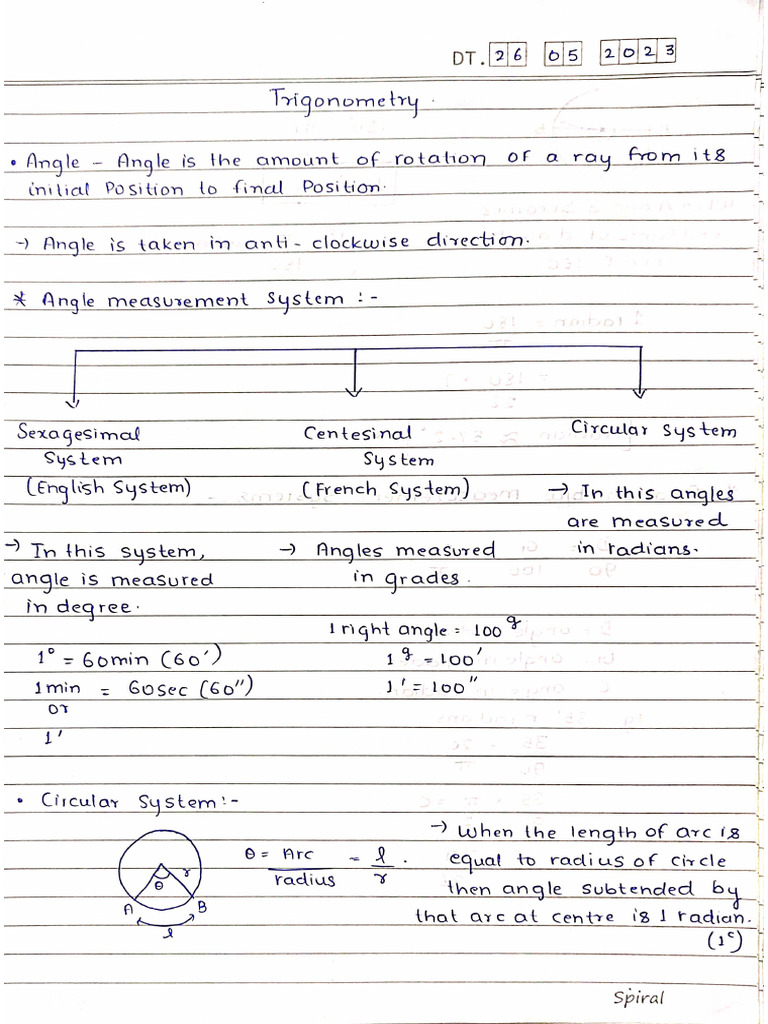 DT. 26 05 2023
Trigonometry.
• Angle - Angle is the amount of rotation of a ray from its
initial Position to final Position.
→ Angle is taken in anti-clockwise direction.
* Angle measurement System :-
Sexagesimal
System
(English System)
→ In this system,
angle is measured
in degree.
1° = 60min (60')
1 min = 60sec (60")
or
1'
Centesinal
System
(French System)
→ Angles measured
in grades.
1 right angle = 100ᵍ
1ᵍ = 100'
1' = 100"
Circular System
→ In this angles
are measured
in radians.
• Circular System:-
θ r
A B
l
θ = Arc/radius = l/r.
→ When the length of arc is
equal to radius of circle
then angle subtended by
that arc at centre is 1 radian.
(1ᶜ)
Spiral